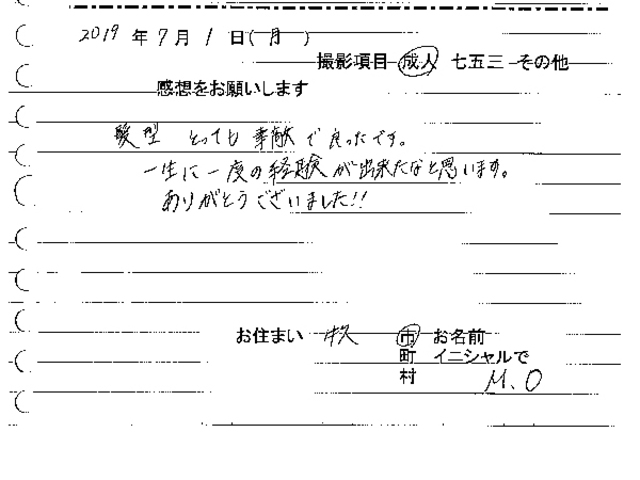 2019 年 7 月 1 日( 月 )
撮影項目 成人 七五三 その他
感想をお願いします
髪型 とっても 素敵 で 良ったです。
一生に 一度の 経験 が 出来たなと思います。
ありがとうございました!!
お住まい 牛久 市 お名前
町 イニシャルで
村 M.O